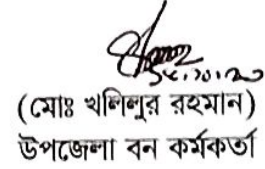 (মোঃ খলিলুর রহমান)
উপজেলা বন কর্মকর্তা